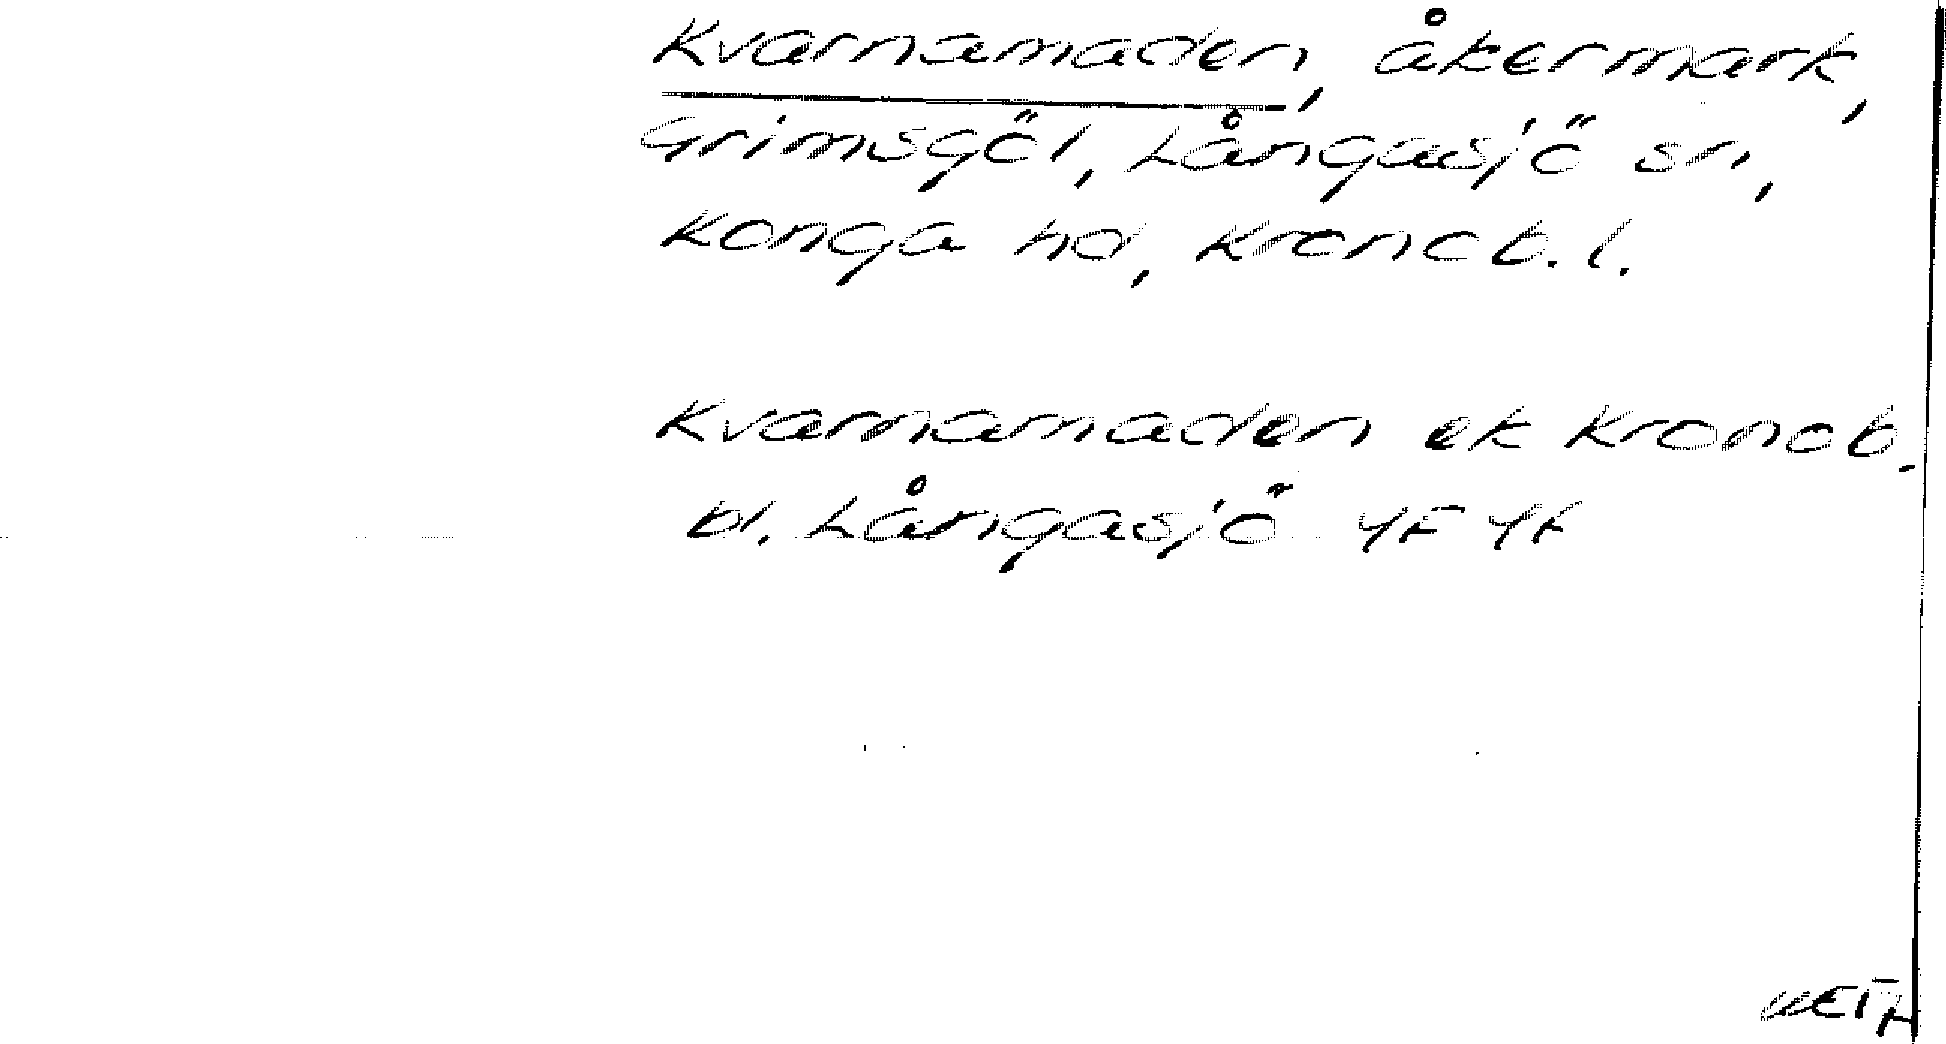 Kvarnamaden, åkermark,
Grimsgöl, Långasjö sn,
Konga hd, Kronob. l.
Kvarnamaden ek Kronob.
bl. Långasjö 4F 4f